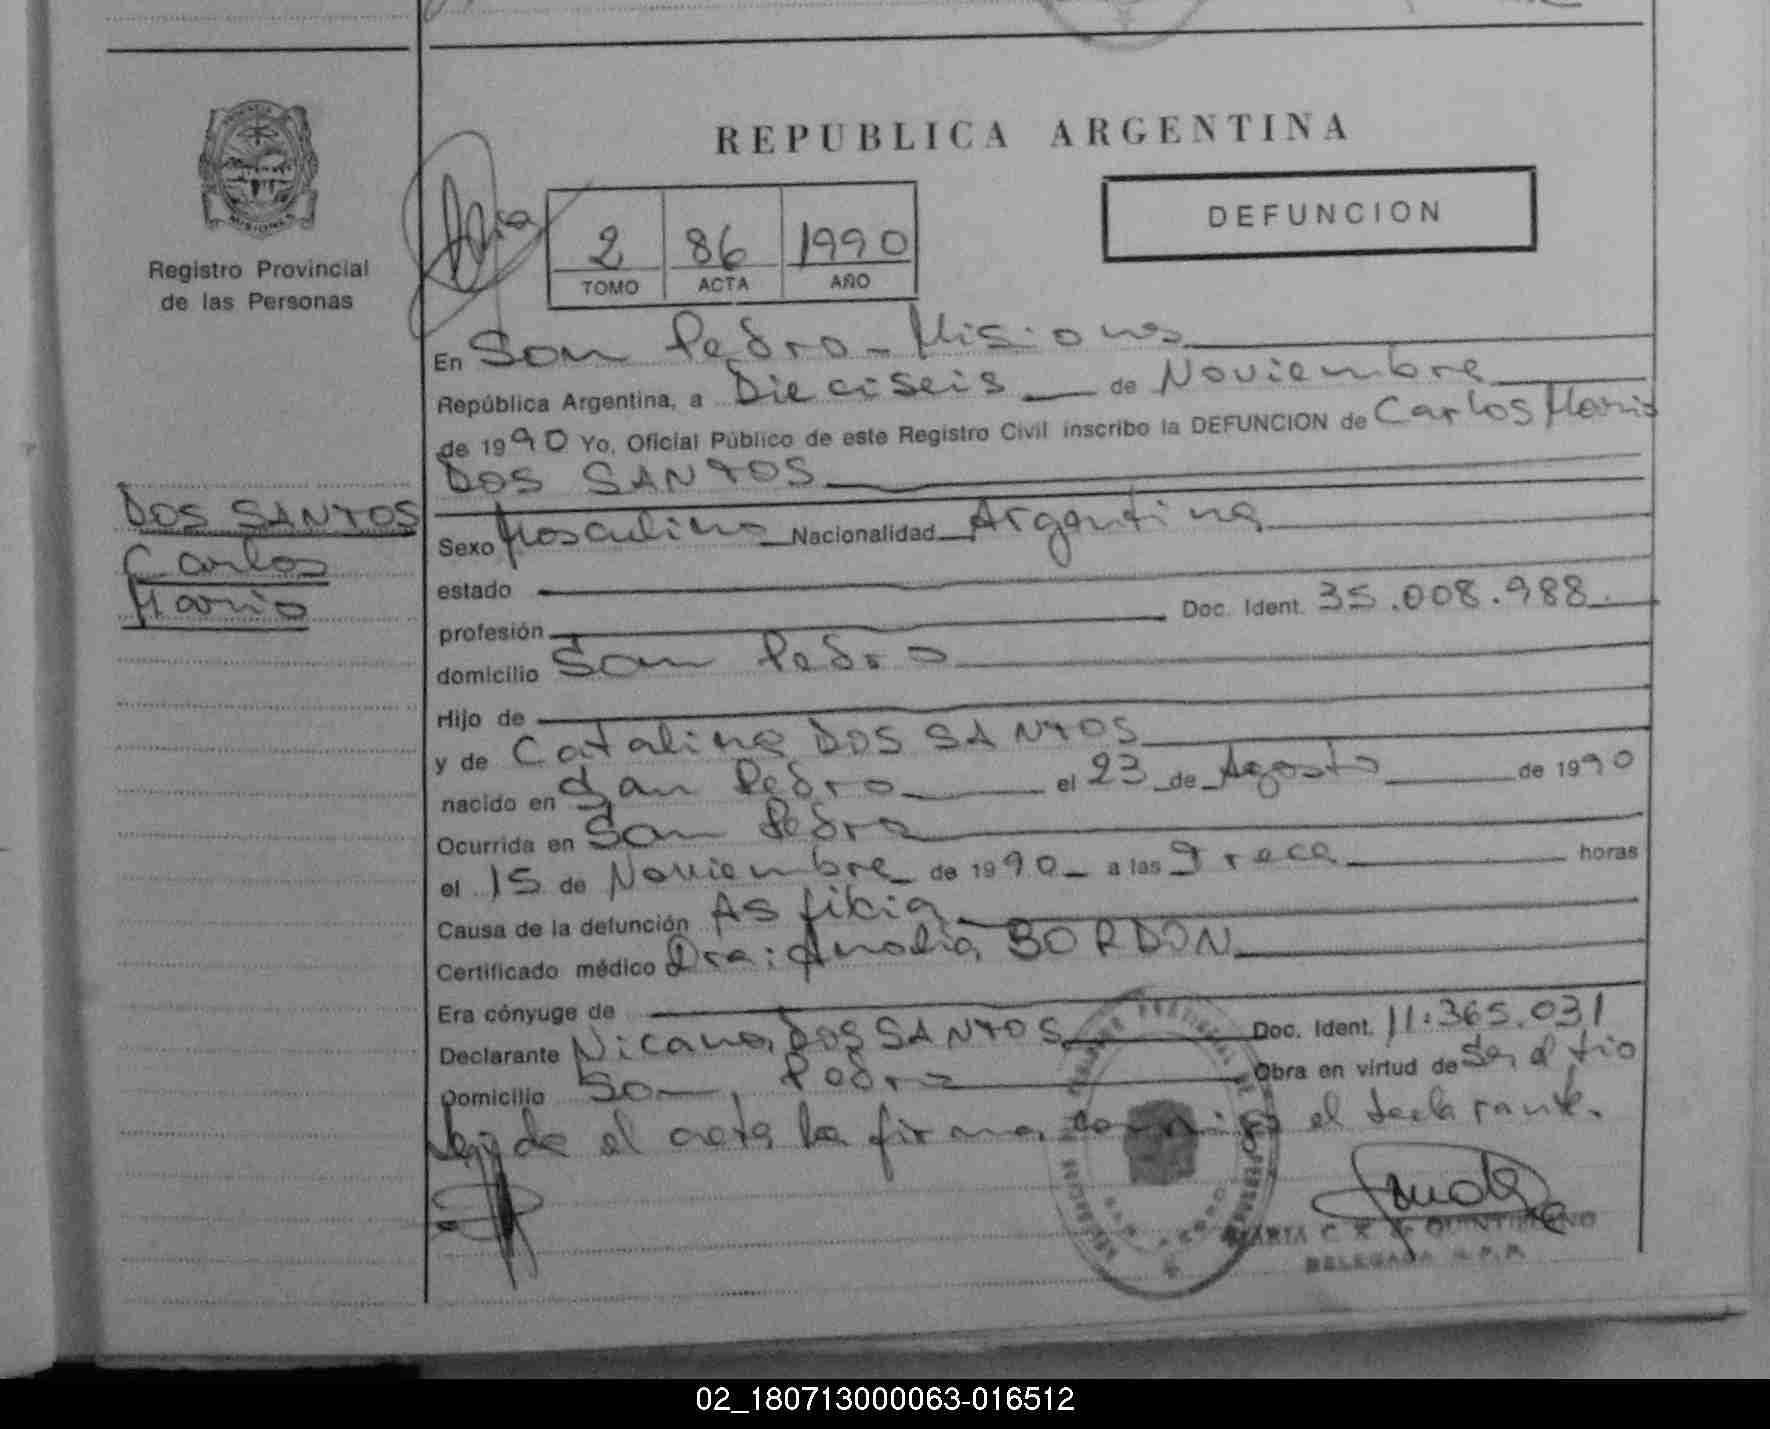 REPUBLICA ARGENTINA
DEFUNCION
Registro Provincial
de las Personas
2 86 1990
TOMO ACTA AÑO
En San Pedro - Misiones
República Argentina, a Dieciseis de Noviembre
de 1990 Yo, Oficial Público de este Registro Civil inscribo la DEFUNCION de Carlos Mario
DOS SANTOS
DOS SANTOS
Carlos
Mario
Sexo Masculino Nacionalidad Argentina
estado
profesión Doc. Ident. 35.008.988.
domicilio San Pedro
Hijo de
y de Catalina DOS SANTOS
nacido en San Pedro el 23 de Agosto de 1990
Ocurrida en San Pedro
el 15 de Noviembre de 1990 a las Trece horas
Causa de la defunción Asfixia
Certificado médico Dra: BORDON
Era cónyuge de
Declarante DOS SANTOS Doc. Ident. 11.365.031
Domicilio San Pedro Obra en virtud de Ser el tio
Leida el acta la firma conmigo el declarante.
MARIA C. DE
DELEGADA R.P.P.
02_180713000063-016512